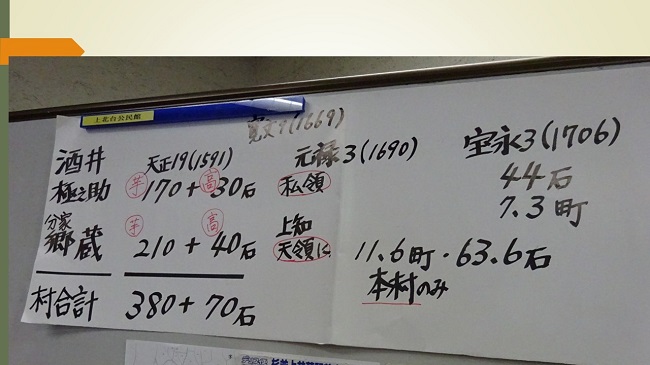 上北台公民館
寛文9(1669)
酒井 天正19(1591) 元禄3(1690) 宝永3(1706)
極之助 芋170+高30石 私領 44石
7.3町
分家 芋 高 上知
郷蔵 210+40石 天領に 11.6町・63.6石
本村のみ
村合計 380+70石